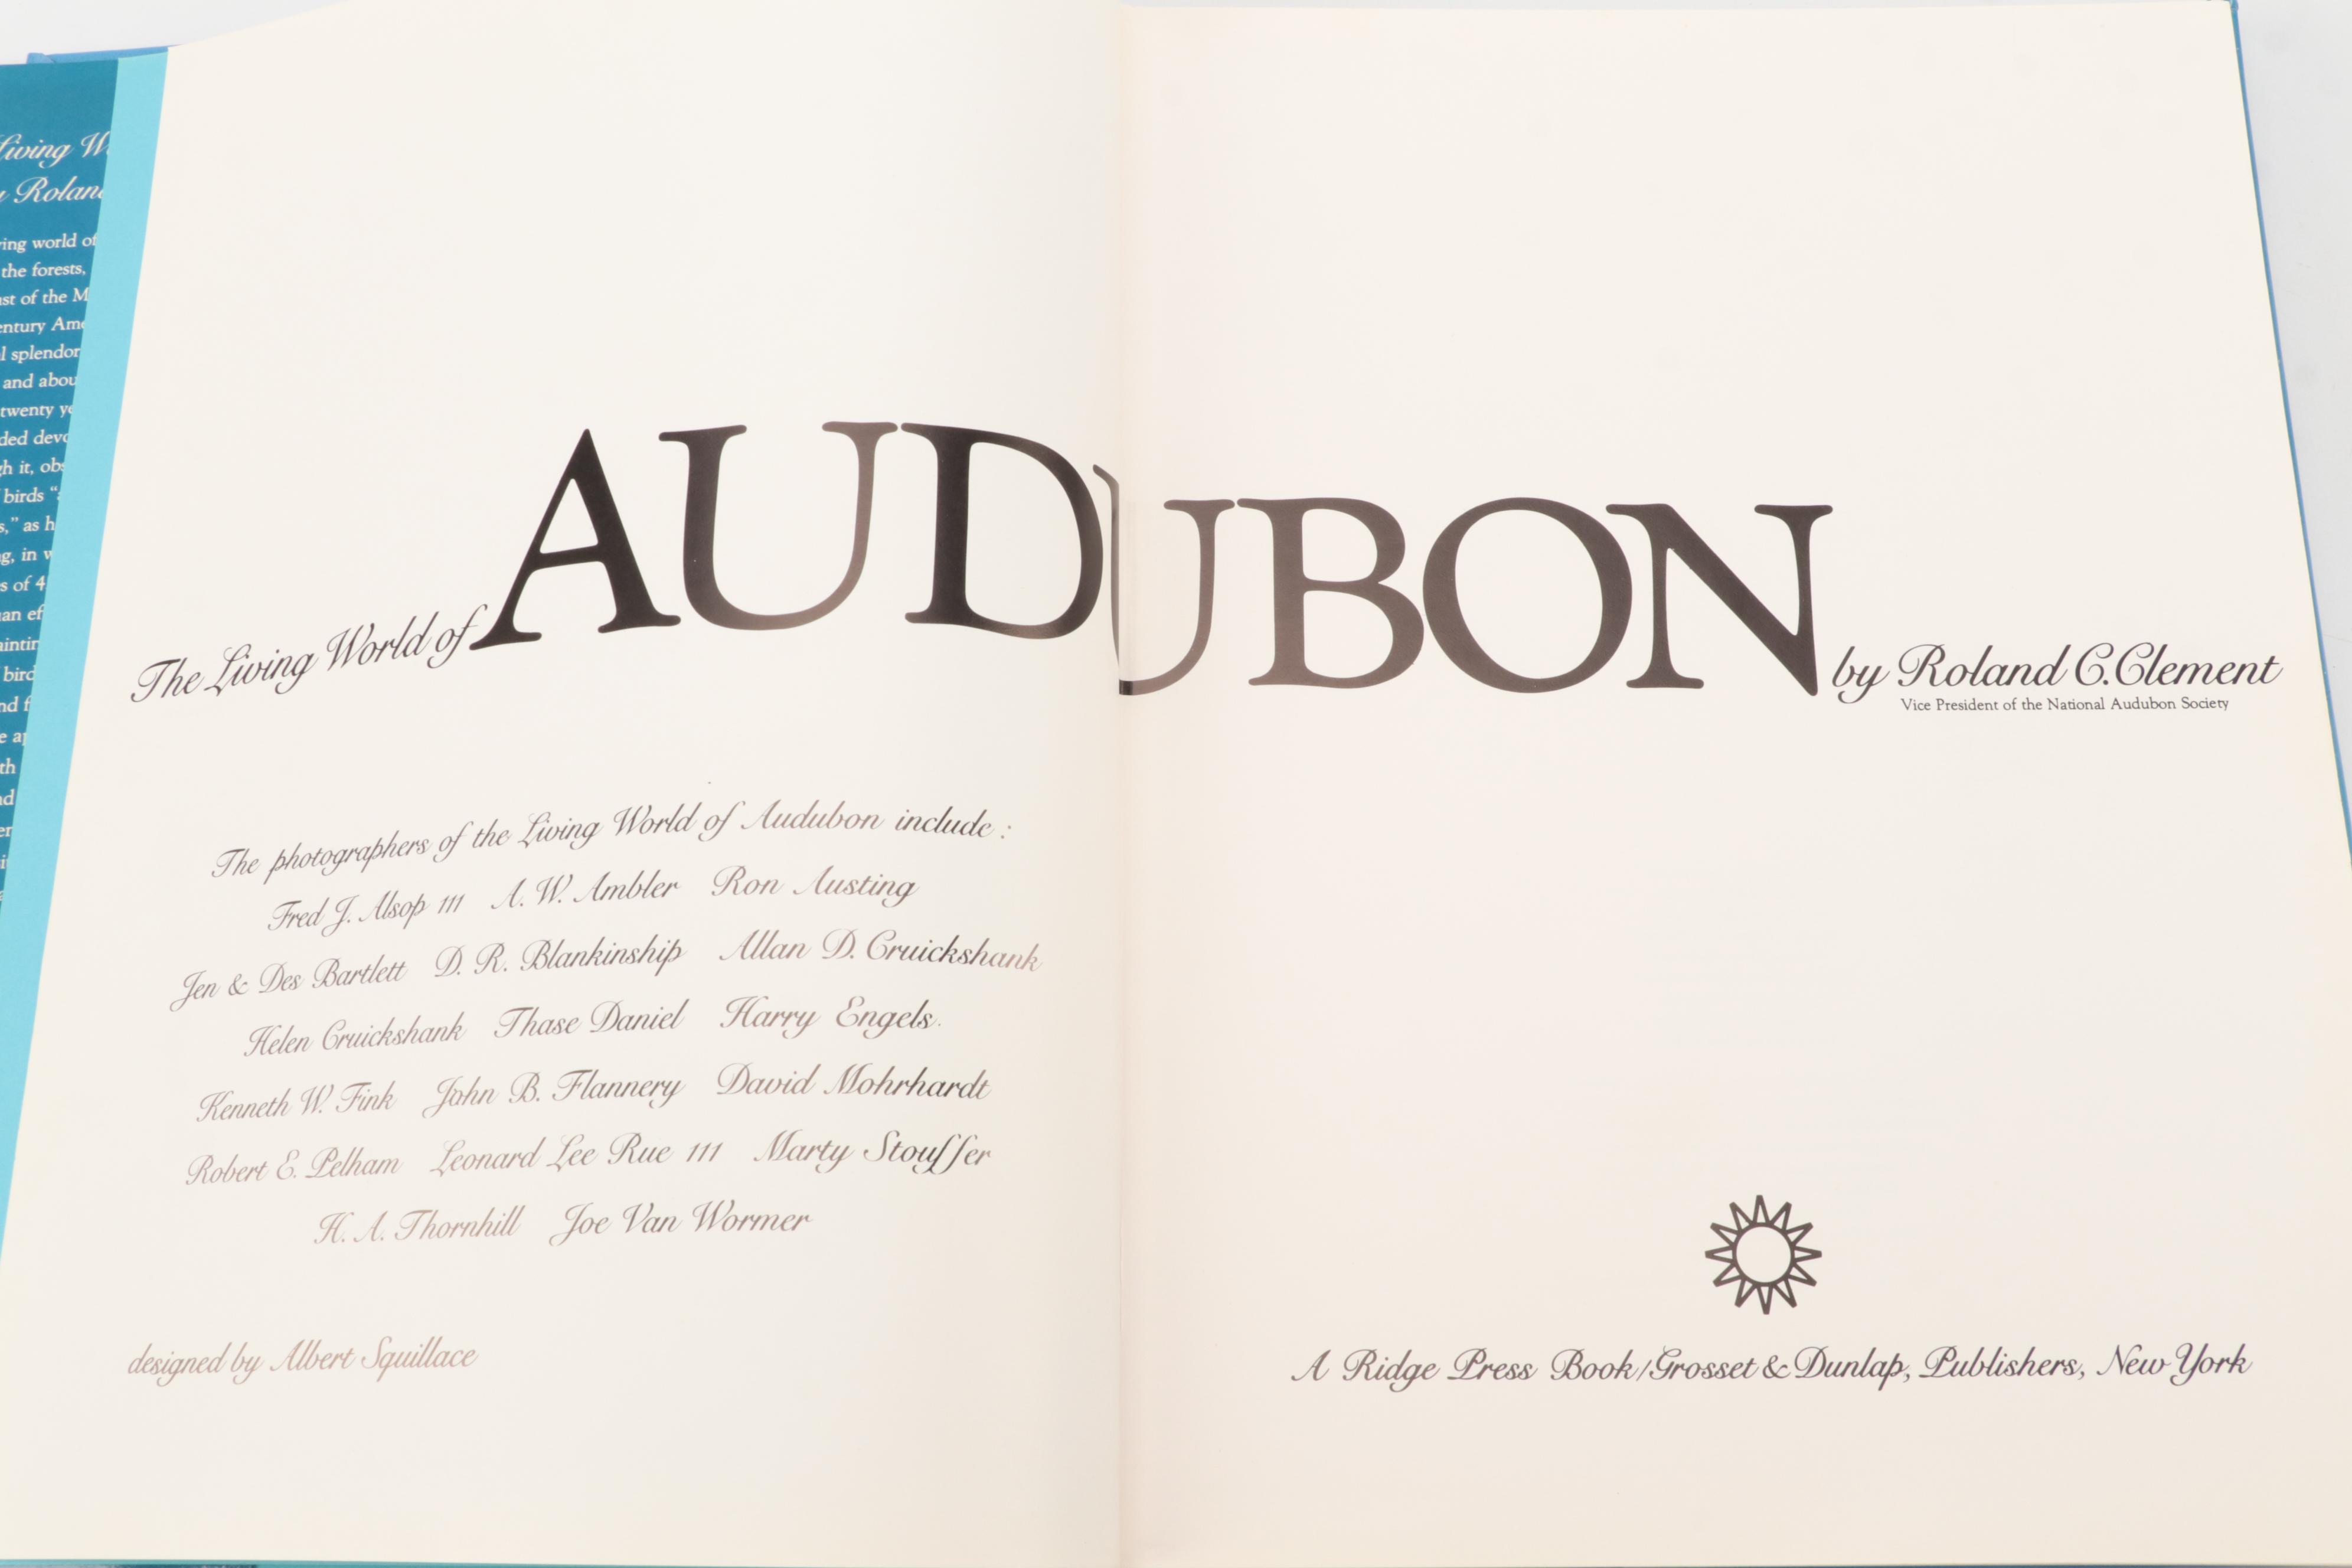 Living W
Roland
ing world of
the forests,
st of the M
entury Ame
l splendor
and abou
twenty ye
ded devo
gh it, obs
birds "
s," as h
g, in w
s of 4
an ef
aintin
bird
nd f
e ap
th
nd
er
The Living World of AUDUBON by Roland C. Clement
Vice President of the National Audubon Society
The photographers of the Living World of Audubon include:
Fred J. Alsop 111 A. W. Ambler Ron Austing
Jen & Des Bartlett D. R. Blankinship Allan D. Cruickshank
Helen Cruickshank Thase Daniel Harry Engels.
Kenneth W. Fink John B. Flannery David Mohrhardt
Robert E. Pelham Leonard Lee Rue 111 Marty Stouffer
H. A. Thornhill Joe Van Wormer
designed by Albert Squillace
A Ridge Press Book/Grosset & Dunlap, Publishers, New York